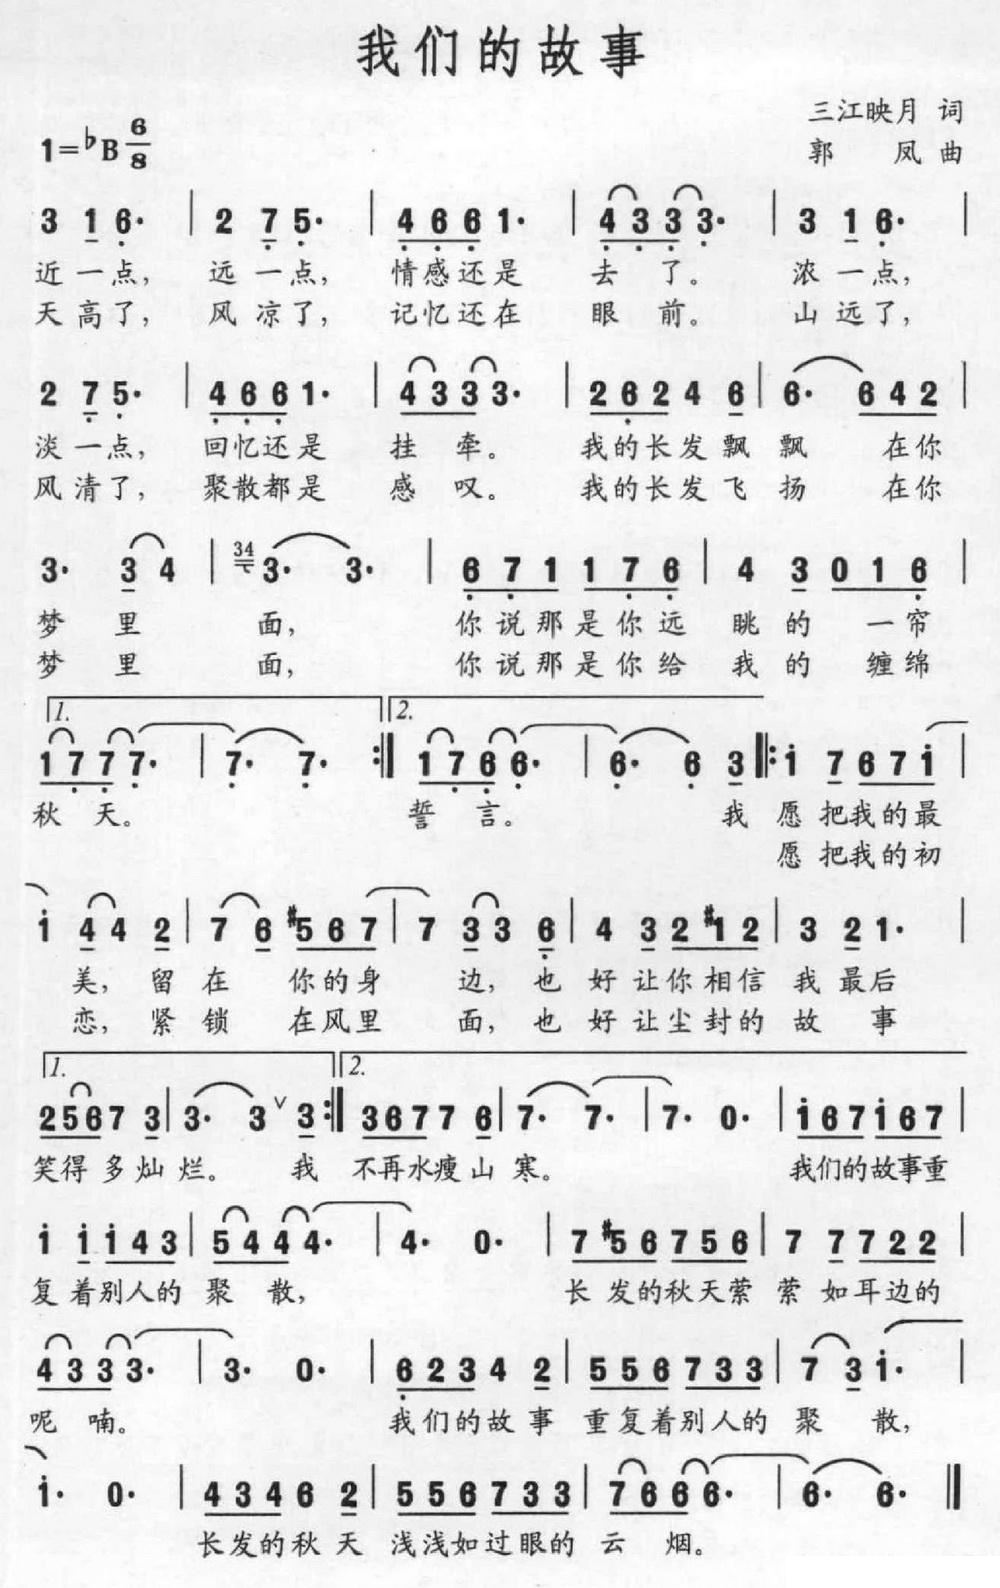 我们的故事
三江映月 词
1=♭B 6/8
郭 凤 曲
3 1 6· | 2 7 5· | 4 6 6 1· | 4 3 3 3· | 3 1 6· |
近 一 点, 远 一 点, 情感还是 去 了。 浓 一 点,
天 高 了, 风 凉 了, 记忆还在 眼 前。 山 远 了,
2 7 5· | 4 6 6 1· | 4 3 3 3· | 2 6 2 4 6 | 6· 6 4 2 |
淡 一 点, 回忆还是 挂 牵。 我的长发飘 飘 在你
风 清 了, 聚散都是 感 叹。 我的长发飞 扬 在你
3· 3 4 | 34 3· 3· | 6 7 1 1 7 6 | 4 3 0 1 6 |
梦 里 面, 你说那是你远 眺 的 一帘
梦 里 面, 你说那是你给 我 的 缠绵
1. 2.
1 7 7 7· | 7· 7· :‖ 1 7 6 6· | 6· 6 3 ‖: i 7 6 7 i |
秋 天。 誓 言。 我 愿 把我的最
愿 把我的初
i 4 4 2 | 7 6 #5 6 7 | 7 3 3 6 | 4 3 2 #1 2 | 3 2 1· |
美, 留 在 你的身 边, 也 好 让你相信 我 最后
恋, 紧 锁 在风里 面, 也 好 让尘封的 故 事
1. 2.
2 5 6 7 3 | 3· 3 ∨ 3 :‖ 3 6 7 7 6 | 7· 7· | 7· 0· | i 6 7 i 6 7 |
笑得多灿 烂。 我 不再水瘦山 寒。 我们的故事重
i i i 4 3 | 5 4 4 4· | 4· 0· | 7 #5 6 7 5 6 | 7 7 7 2 2 |
复 着别人的 聚 散, 长发的秋天萦 萦 如耳边的
4 3 3 3· | 3· 0· | 6 2 3 4 2 | 5 5 6 7 3 3 | 7 3 i· |
呢 喃。 我们的故事 重复着别人的 聚 散,
i· 0· | 4 3 4 6 2 | 5 5 6 7 3 3 | 7 6 6 6· | 6· 6· ‖
长发的秋天 浅浅如过眼的 云 烟。